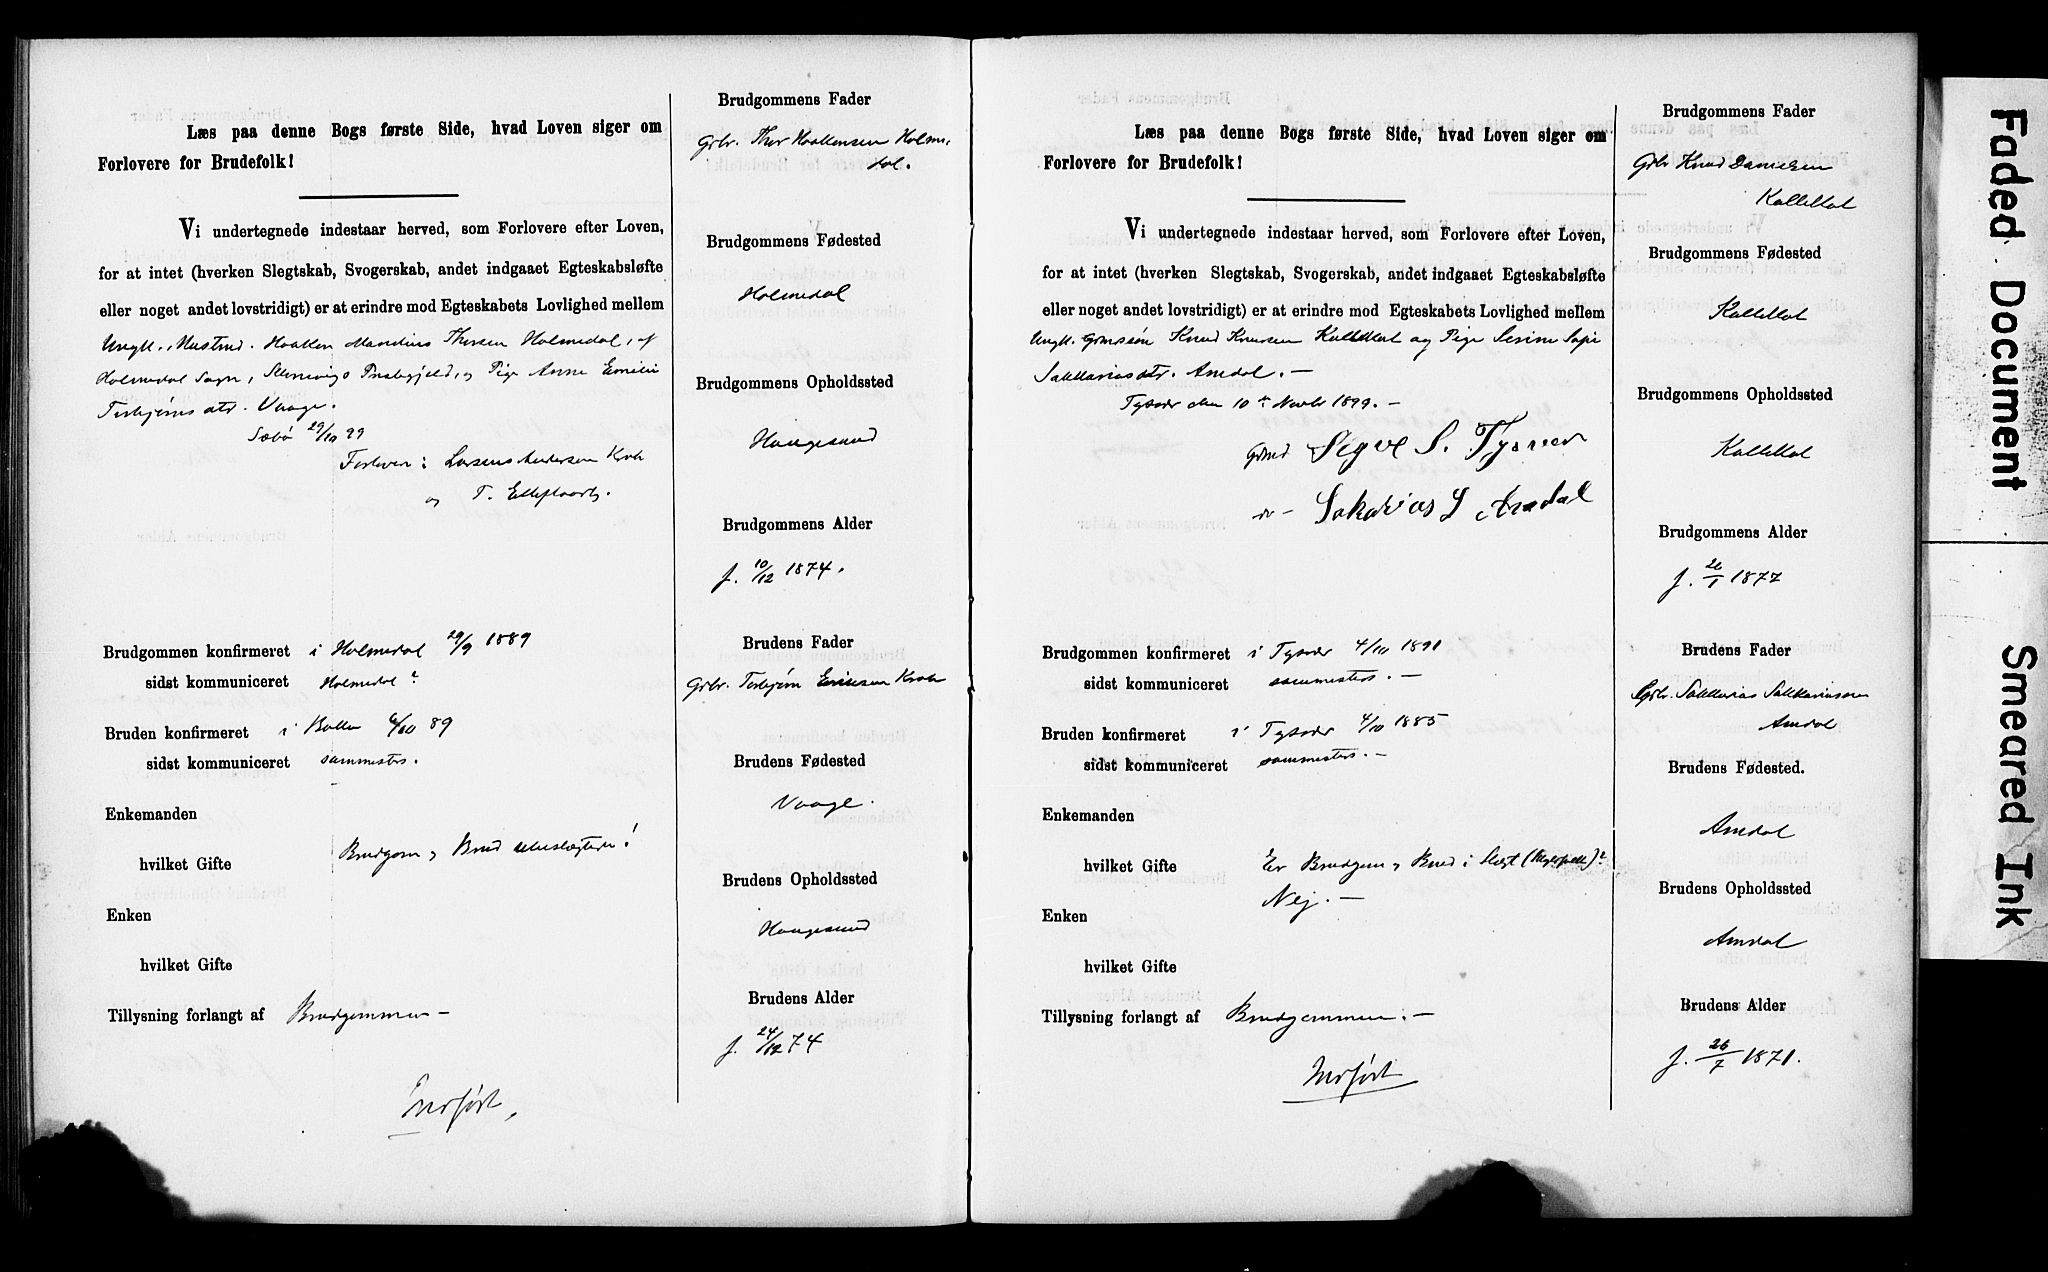 Læs paa denne Bogs første Side, hvad Loven siger om
Forlovere for Brudefolk!
Vi undertegnede indestaar herved, som Forlovere efter Loven,
for at intet (hverken Slegtskab, Svogerskab, andet indgaaet Egteskabsløfte
eller noget andet lovstridigt) er at erindre mod Egteskabets Lovlighed mellem
Ungk., Haaken Thorsen Holmedal, af
Holmedal Sogn, Præstegjeld, og Pige Anne Emilie
Torbjørnsdtr. Vaage.
Sæbø 29/10 99
Forlovere: Andersen
og T.
Brudgommen konfirmeret i Holmedal 29/9 1889
sidst kommuniceret Holmedal?
Bruden konfirmeret i 6/10 89
sidst kommuniceret sammesteds.
Enkemanden
hvilket Gifte Brudgom og Brud ubeslægtede!
Enken
hvilket Gifte
Tillysning forlangt af Brudgommen –
Indført,
Brudgommens Fader
Grbr. Thor Haakensen Holme-
dal.
Brudgommens Fødested
Holmedal
Brudgommens Opholdssted
Haugesund
Brudgommens Alder
f. 10/12 1874.
Brudens Fader
Gbr. Torbjørn Ericksen
Brudens Fødested
Vaage.
Brudens Opholdssted
Haugesund
Brudens Alder
f. 24/12 74
Læs paa denne Bogs første Side, hvad Loven siger om
Forlovere for Brudefolk!
Vi undertegnede indestaar herved, som Forlovere efter Loven,
for at intet (hverken Slegtskab, Svogerskab, andet indgaaet Egteskabsløfte
eller noget andet lovstridigt) er at erindre mod Egteskabets Lovlighed mellem
Ungk. Grmssøn Knud Knudsen og Pige Serine
Sakkariasdtr. Amdal. –
Tysvær den 10de Novbr 1899. –
Grmd Sigve S. Tysver
do – Sakarias S Amdal
Brudgommen konfirmeret i Tysvær 4/10 1891
sidst kommuniceret sammesteds. –
Bruden konfirmeret i Tysvær 4/10 1885
sidst kommuniceret sammesteds. –
Enkemanden
hvilket Gifte Er Brudgom og Brud i Slegt
Nej. –
Enken
hvilket Gifte
Tillysning forlangt af Brudgommen. –
Indført
Brudgommens Fader
Gbr Knud Danielsen
Brudgommens Fødested
Brudgommens Opholdssted
Brudgommens Alder
f. 26/1 1877
Brudens Fader
Gbr. Sakkarias Sakkariassen
Amdal
Brudens Fødested.
Amdal
Brudens Opholdssted
Amdal
Brudens Alder
f. 26/7 1871.
Faded Document
Smeared Ink